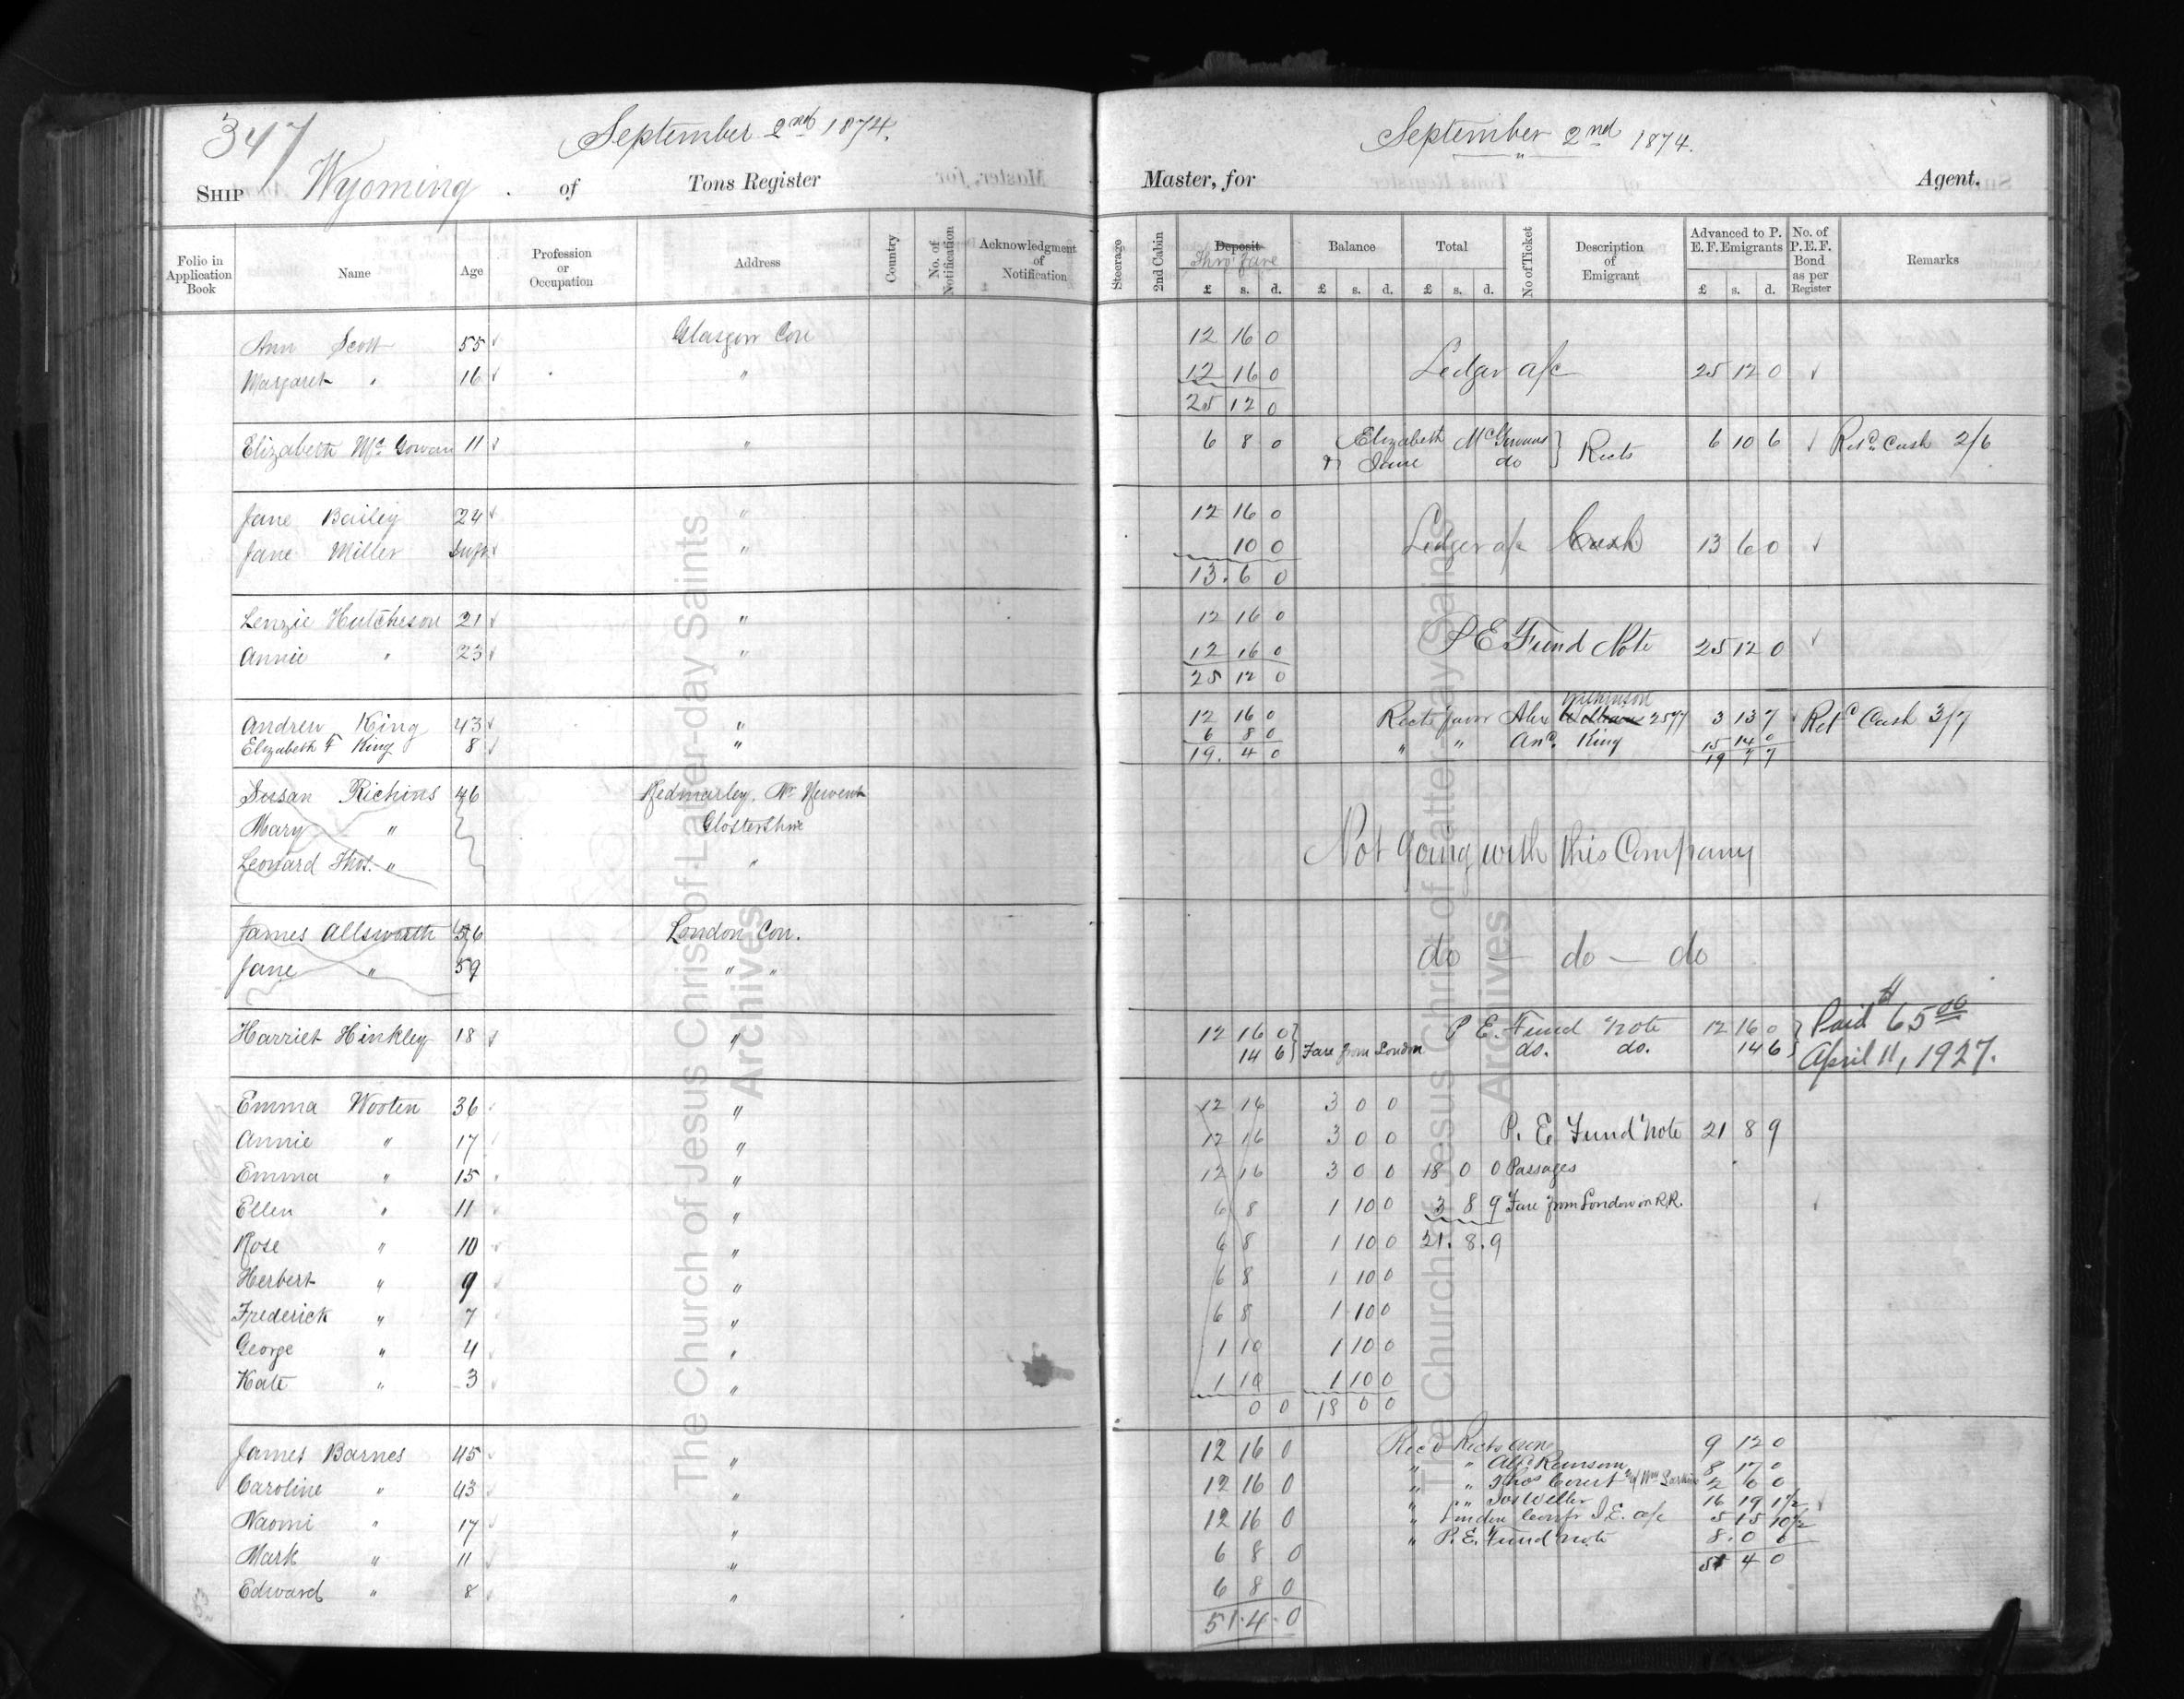 347
September 2nd 1874.
SHIP Wyoming. of Tons Register
Folio in Application Book Name Age Profession or Occupation Address Country No. of Notification Acknowledgment of Notification
Ann Scott 55 Glasgow Con
Margaret " 16 "
Elizabeth McGowan 11 "
Jane Bailey 24 "
Jane Miller Infn "
Lenzie Hutcheson 21 "
Annie " 23 "
Andrew King 43 "
Elizabeth F King 8 "
Sussan Richins 46 Redmarley, Nr Newent
Mary " Glostershire
Leonard Thos. " "
James Allsworth 56 London Con.
Jane " 59 " "
Harriet Hinkley 18 "
Emma Wooten 36 "
Annie " 17 "
Emma " 15 "
Ellen " 11 "
Rose " 10 "
Herbert " 9 "
Frederick " 7 "
George " 4 "
Kate " 3 "
James Barnes 45 "
Caroline " 43 "
Naomi " 17 "
Mark " 11 "
Edward " 8 "
September 2nd 1874.
Master, for Agent.
Steerage 2nd Cabin Deposit Thro' Fare £ s. d. Balance £ s. d. Total £ s. d. No of Ticket Description of Emigrant Advanced to P. E. F. Emigrants £ s. d. No. of P.E.F. Bond as per Register Remarks
12 16 0
12 16 0 Ledger a/c 25 12 0
25 12 0
6 8 0 Elizabeth McGowans } Rects 6 10 6 Retd Cash 2/6
Jane do
12 16 0
10 0 Ledger a/c Cash 13 6 0
13. 6 0
12 16 0
12 16 0 P E Fund Note 25 12 0
25 12 0
Wilkinson
12 16 0 Rects favor Alex 2577 3 13 7 Retd Cash 3/7
6 8 0 " " And. King 15 14 0
19. 4 0 19 7 7
Not Going with this Company
do — do — do
12 16 0 } P E. Fund note 12 16 0 } Paid $65.00
14 6 } Fare from London do. do. 14 6 } April 11, 1927.
12 16 3 0 0
12 16 3 0 0 P. E. Fund Note 21 8 9
12 16 3 0 0 18 0 0 Passages
6 8 1 10 0 3 8 9 Fare from London on R.R.
6 8 1 10 0 21. 8. 9
6 8 1 10 0
6 8 1 10 0
1 10 1 10 0
1 10 1 10 0
0 0 18 0 0
12 16 0 Rec'd Rects own 9 12 0
" " Alfd Ransom 8 17 0
12 16 0 " " Thos Court 2 6 0
" " Jos Weller 16 19 1½
12 16 0 " London Confr I.E. a/c 5 15 10½
6 8 0 " P. E. Fund note 8. 0 0
51 4 0
6 8 0
51. 4. 0
The Church of Jesus Christ of Latter-day Saints
Archives
The Church of Jesus Christ of Latter-day Saints
Archives